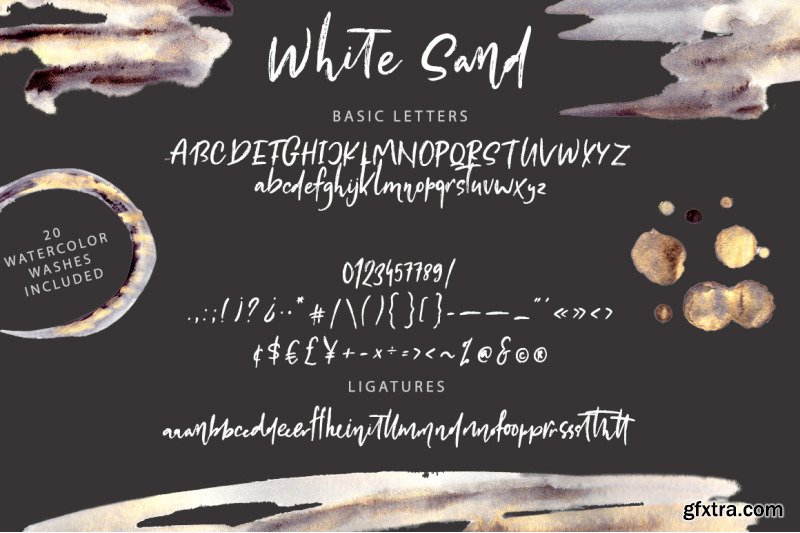 White Sand
BASIC LETTERS
ABCDEFGHIJKLMNOPQRSTUVWXYZ
abcdefghijklmnopqrstuvwxyz
20
WATERCOLOR
WASHES
INCLUDED
0123457789/
.,:;!¡?¿··*#/\(){}[]-–—_"'«»‹›
¢$€£¥+-×÷=><~%@&©®
LIGATURES
gfxtra.com